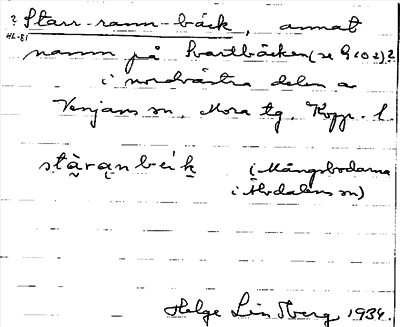 ? Starr-rann-bäck, annat
HL-81
namn på Svartbäcken (se G i o s) ?
i nordvästra delen av
Venjans sn, Mora tg, Kopp. l.
stä̀ranbeik (Mångsbodarna
i Älvdalens sn)
Helge Lindberg 1934.